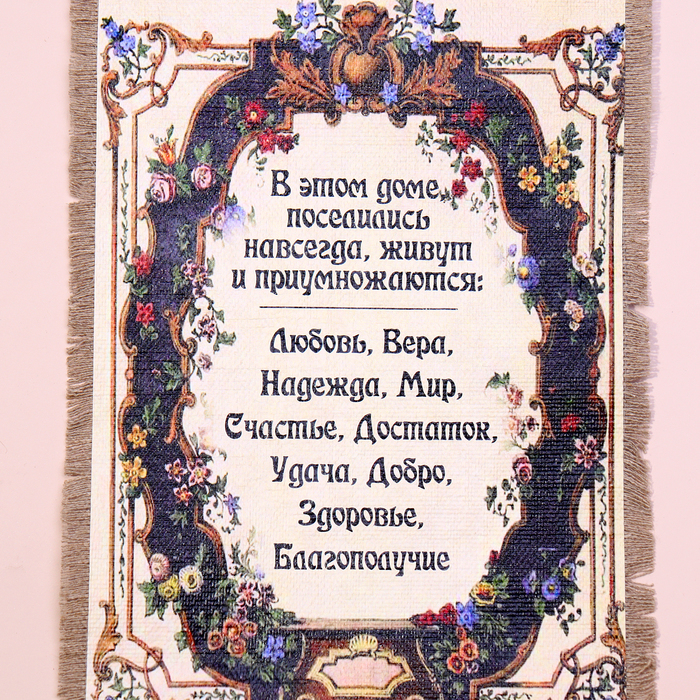 В этом доме
поселились
навсегда, живут
и приумножаются:
Любовь, Вера,
Надежда, Мир,
Счастье, Достаток,
Удача, Добро,
Здоровье,
Благополучие